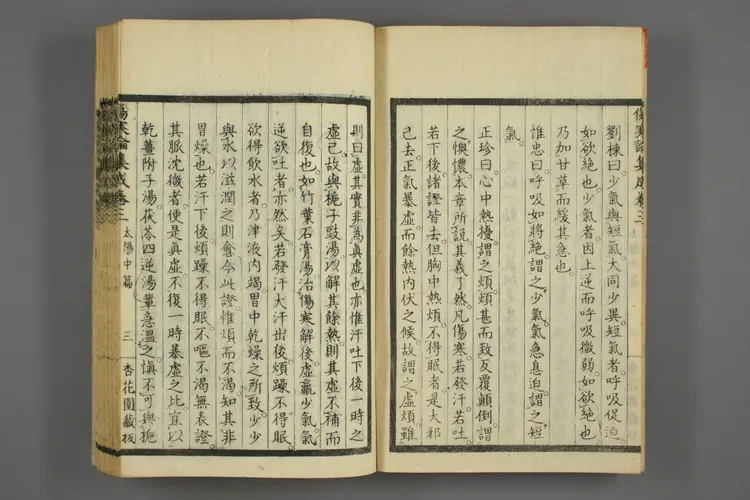 傷寒論集成卷三
劉棟曰少氣與短氣大同少異短氣者呼吸促迫
如欲絕也少氣者因上逆而呼吸微弱如欲絕也
乃加甘草而緩其急也
惟忠曰呼吸如將絕謂之少氣氣急息迫謂之短
氣
正珍曰心中熱擾謂之煩煩甚而致反覆顛倒謂
之懊憹本章所說其義了然凡傷寒若發汗若吐
若下後諸證皆去但胸中熱煩不得眠者是大邪
已去正氣暴虛而餘熱內伏之候故謂之虛煩雖
則曰虛其實非為真虛也亦惟汗吐下後一時之
虛已故與梔子豉湯以解其餘熱則其虛不補而
自復也如竹葉石膏湯治傷寒解後虛羸少氣氣
逆欲吐者亦然矣若發汗大汗出後煩躁不得眠
欲得飲水者乃津液內竭胃中乾燥之所致少少
與水以滋潤之則愈今此證惟煩而不渴知其非
胃燥也若汗下後煩躁不得眠不嘔不渴無表證
其脈沈微者便是真虛不復一時暴虛之比宜以
乾薑附子湯茯苓四逆湯輩急溫之愼不可與梔
傷寒論集成卷三
太陽中篇
三
杏花園藏板